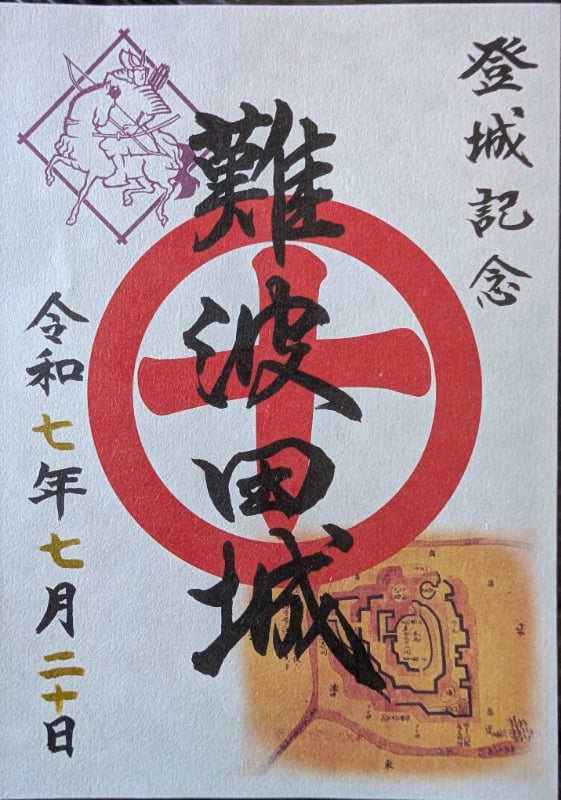 登城記念
難波田城
令和七年七月二十日